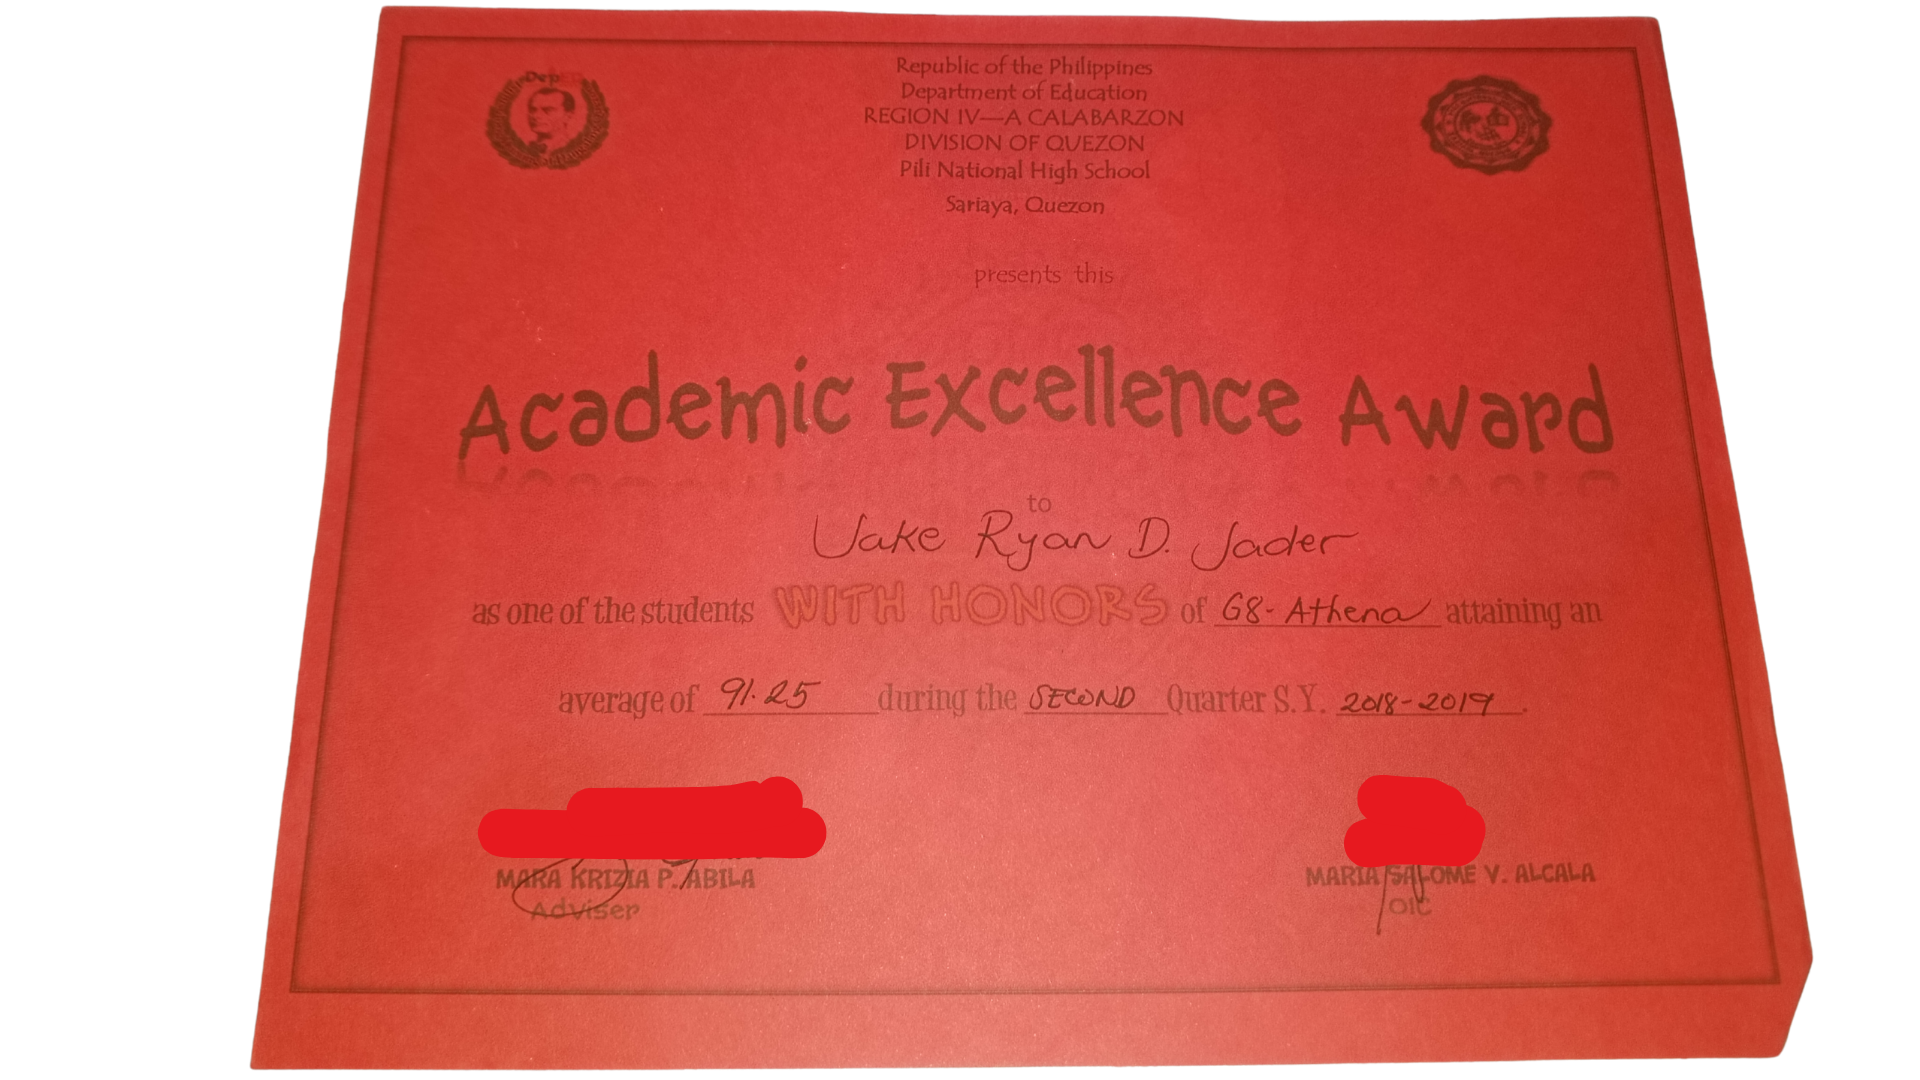 Republic of the Philippines
Department of Education
REGION IV—A CALABARZON
DIVISION OF QUEZON
Pili National High School
Sariaya, Quezon
DepED
presents this
Academic Excellence Award
to
Jake Ryan D. Jader
as one of the students WITH HONORS of G8-Athena attaining an
average of 91.25 during the SECOND Quarter S.Y. 2018-2019.
MARA KRIZIA P. ABILA
Adviser
MARIA SALOME V. ALCALA
OIC